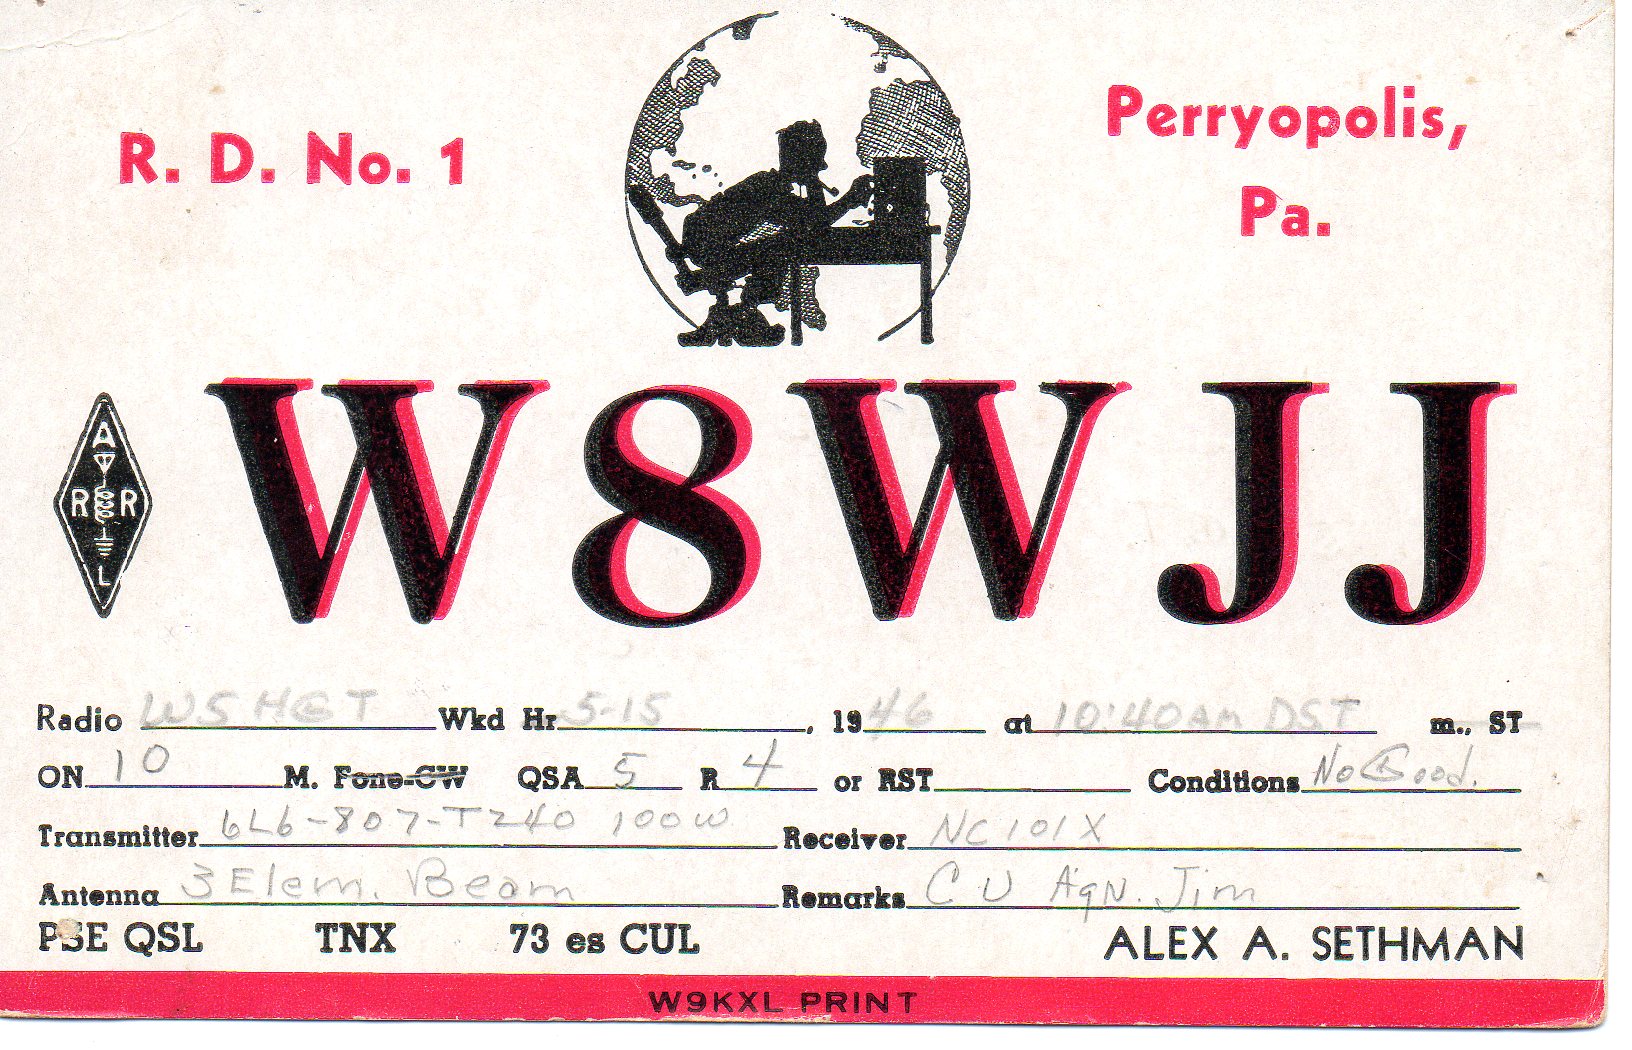 R. D. No. 1
Perryopolis,
Pa.
W8WJJ
A
R R
L
Radio W5HGT Wkd Hr 5-15, 1946 at 10:40AM DST m., ST
ON 10 M. Fone-CW QSA 5 R 4 or RST Conditions No Good.
Transmitter 6L6-807-TZ40 100W Receiver NC101X
Antenna 3 Elem. Beam Remarks C U Agn. Jim
PSE QSL TNX 73 es CUL ALEX A. SETHMAN
W9KXL PRINT